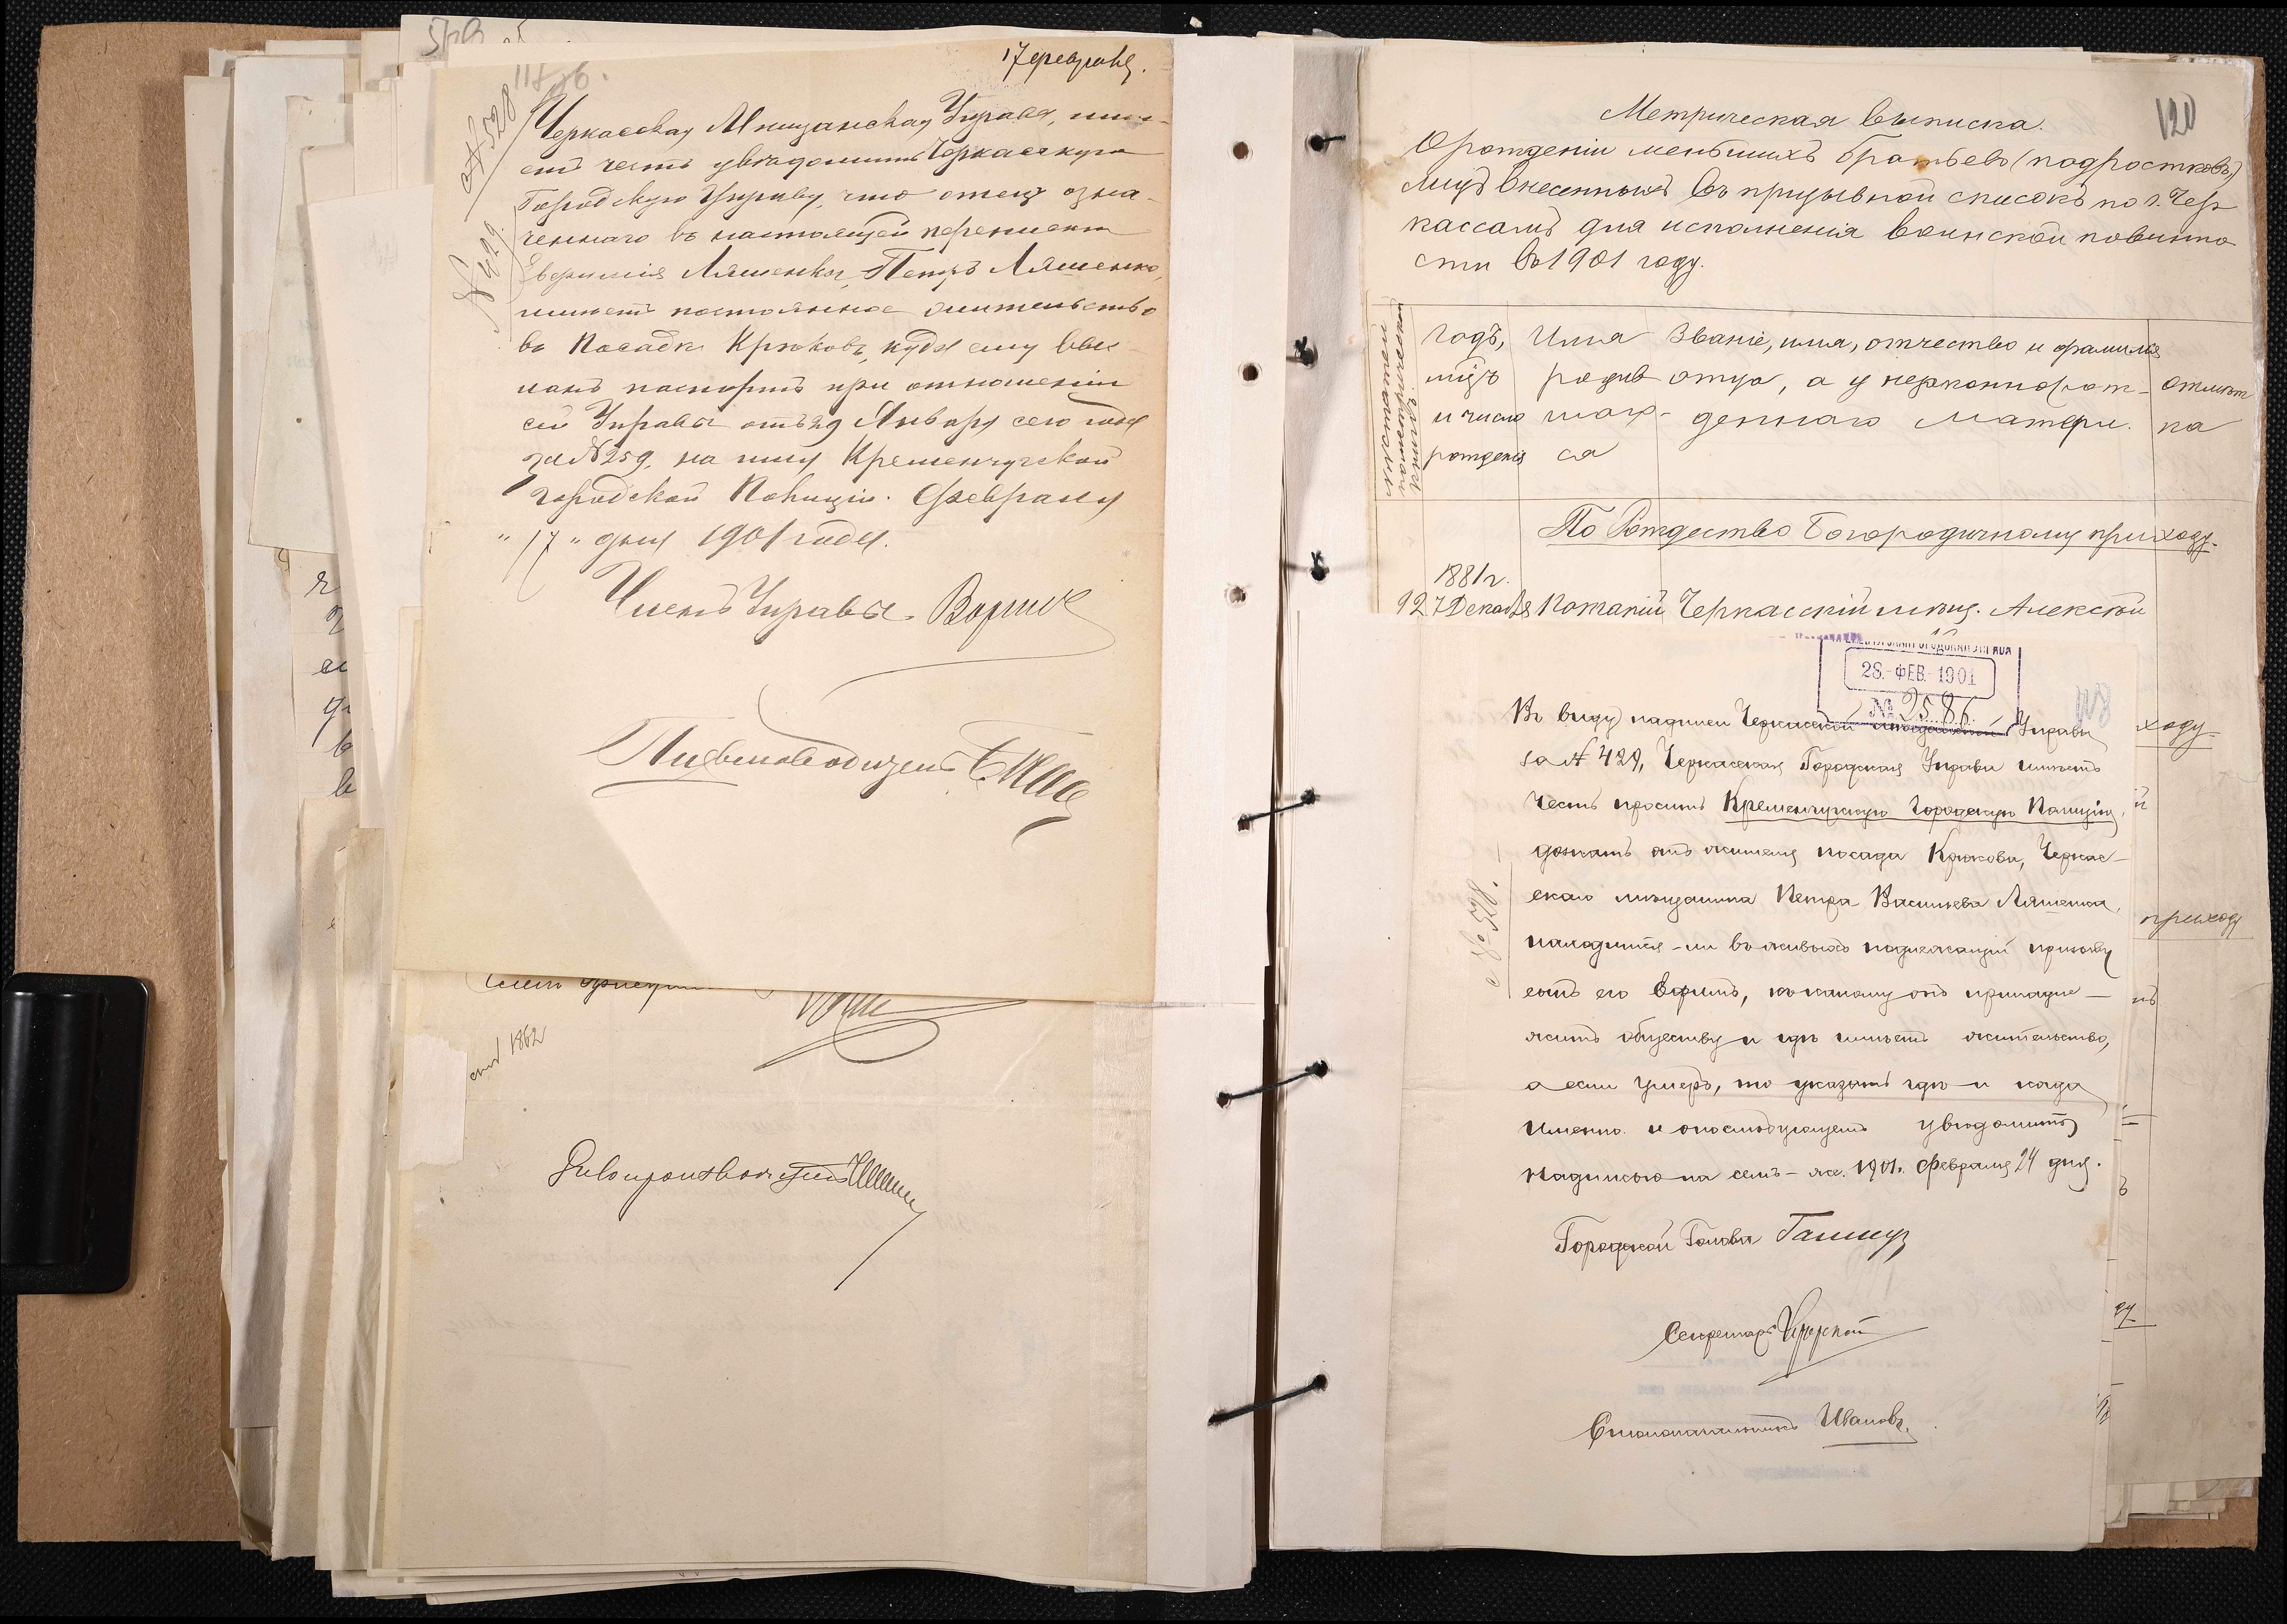 17 февраля.
№ 528
№ 429.
Черкасская Мѣщанская Управа, имѣ-
етъ честь увѣдомить Черкасскую
Городскую Управу, что отецъ озна-
ченнаго въ настоящей перепискѣ
Ефимія Ляшенка, Петръ Ляшенко,
имѣетъ постоянное жительство
въ Посадѣ Крюковѣ, куда ему выс-
ланъ паспортъ при отношеніи
сей Управы отъ 29 Января сего года
за № 259, на имя Кременчугской
Городской Полиціи. Февраля
"17" дня 1901 года.
Членъ Управы
Письмоводитель
1862
Дѣлопроизводитель
120
Метрическая выписка.
О рожденіи меньшихъ братьевъ (подростковъ)
лицъ внесенныхъ въ призывной списокъ по г. Чер
кассамъ для исполненія воинской повинно
сти въ 1901 году.
Годъ, Имя Званіе, имя, отчество и фамилія
мѣц родив отца, а у незаконнорож- отмѣт
и число шаго- деннаго матери. ка
рожденія ся
По Рождество Богородичному приходу.
1881 г.
12 7 Декабря Потапій Черкасскій мѣщ. Алексѣй
28.-ФЕВ.-1901
№ 2586.
118
Въ виду надписи Черкасской Мѣщанской Управы
за № 429, Черкасская Городская Управа имѣетъ
честь просить Кременчугскую Городскую Полицію,
дознать отъ жителя посада Крюкова, Черкас-
скаго мѣщанина Петра Васильева Ляшенка,
находится-ли въ живыхъ подлежащій призыву
сынъ его Ефимъ, къ какому онъ принадле-
житъ обществу и гдѣ имѣетъ жительство,
а если умеръ, то указать гдѣ и когда
именно и о послѣдующемъ увѣдомить
надписью на семъ-же. 1901. Февраля 24 дня.
№ 528.
Городской Голова
Секретарь
Столоначальникъ Ивановъ.
ходу
приходу